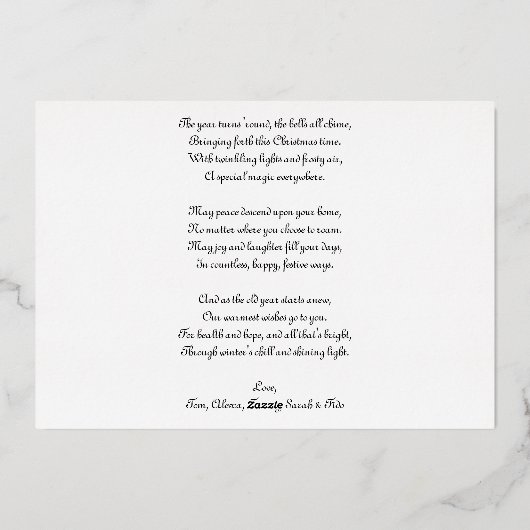 The year turns 'round, the bells all chime,
Bringing forth this Christmas time.
With twinkling lights and frosty air,
A special magic everywhere.
May peace descend upon your home,
No matter where you choose to roam.
May joy and laughter fill your days,
In countless, happy, festive ways.
And as the old year starts anew,
Our warmest wishes go to you.
For health and hope, and all that's bright,
Through winter's chill and shining light.
Love,
Tom, Alexa, Zazzle Sarah & Fido